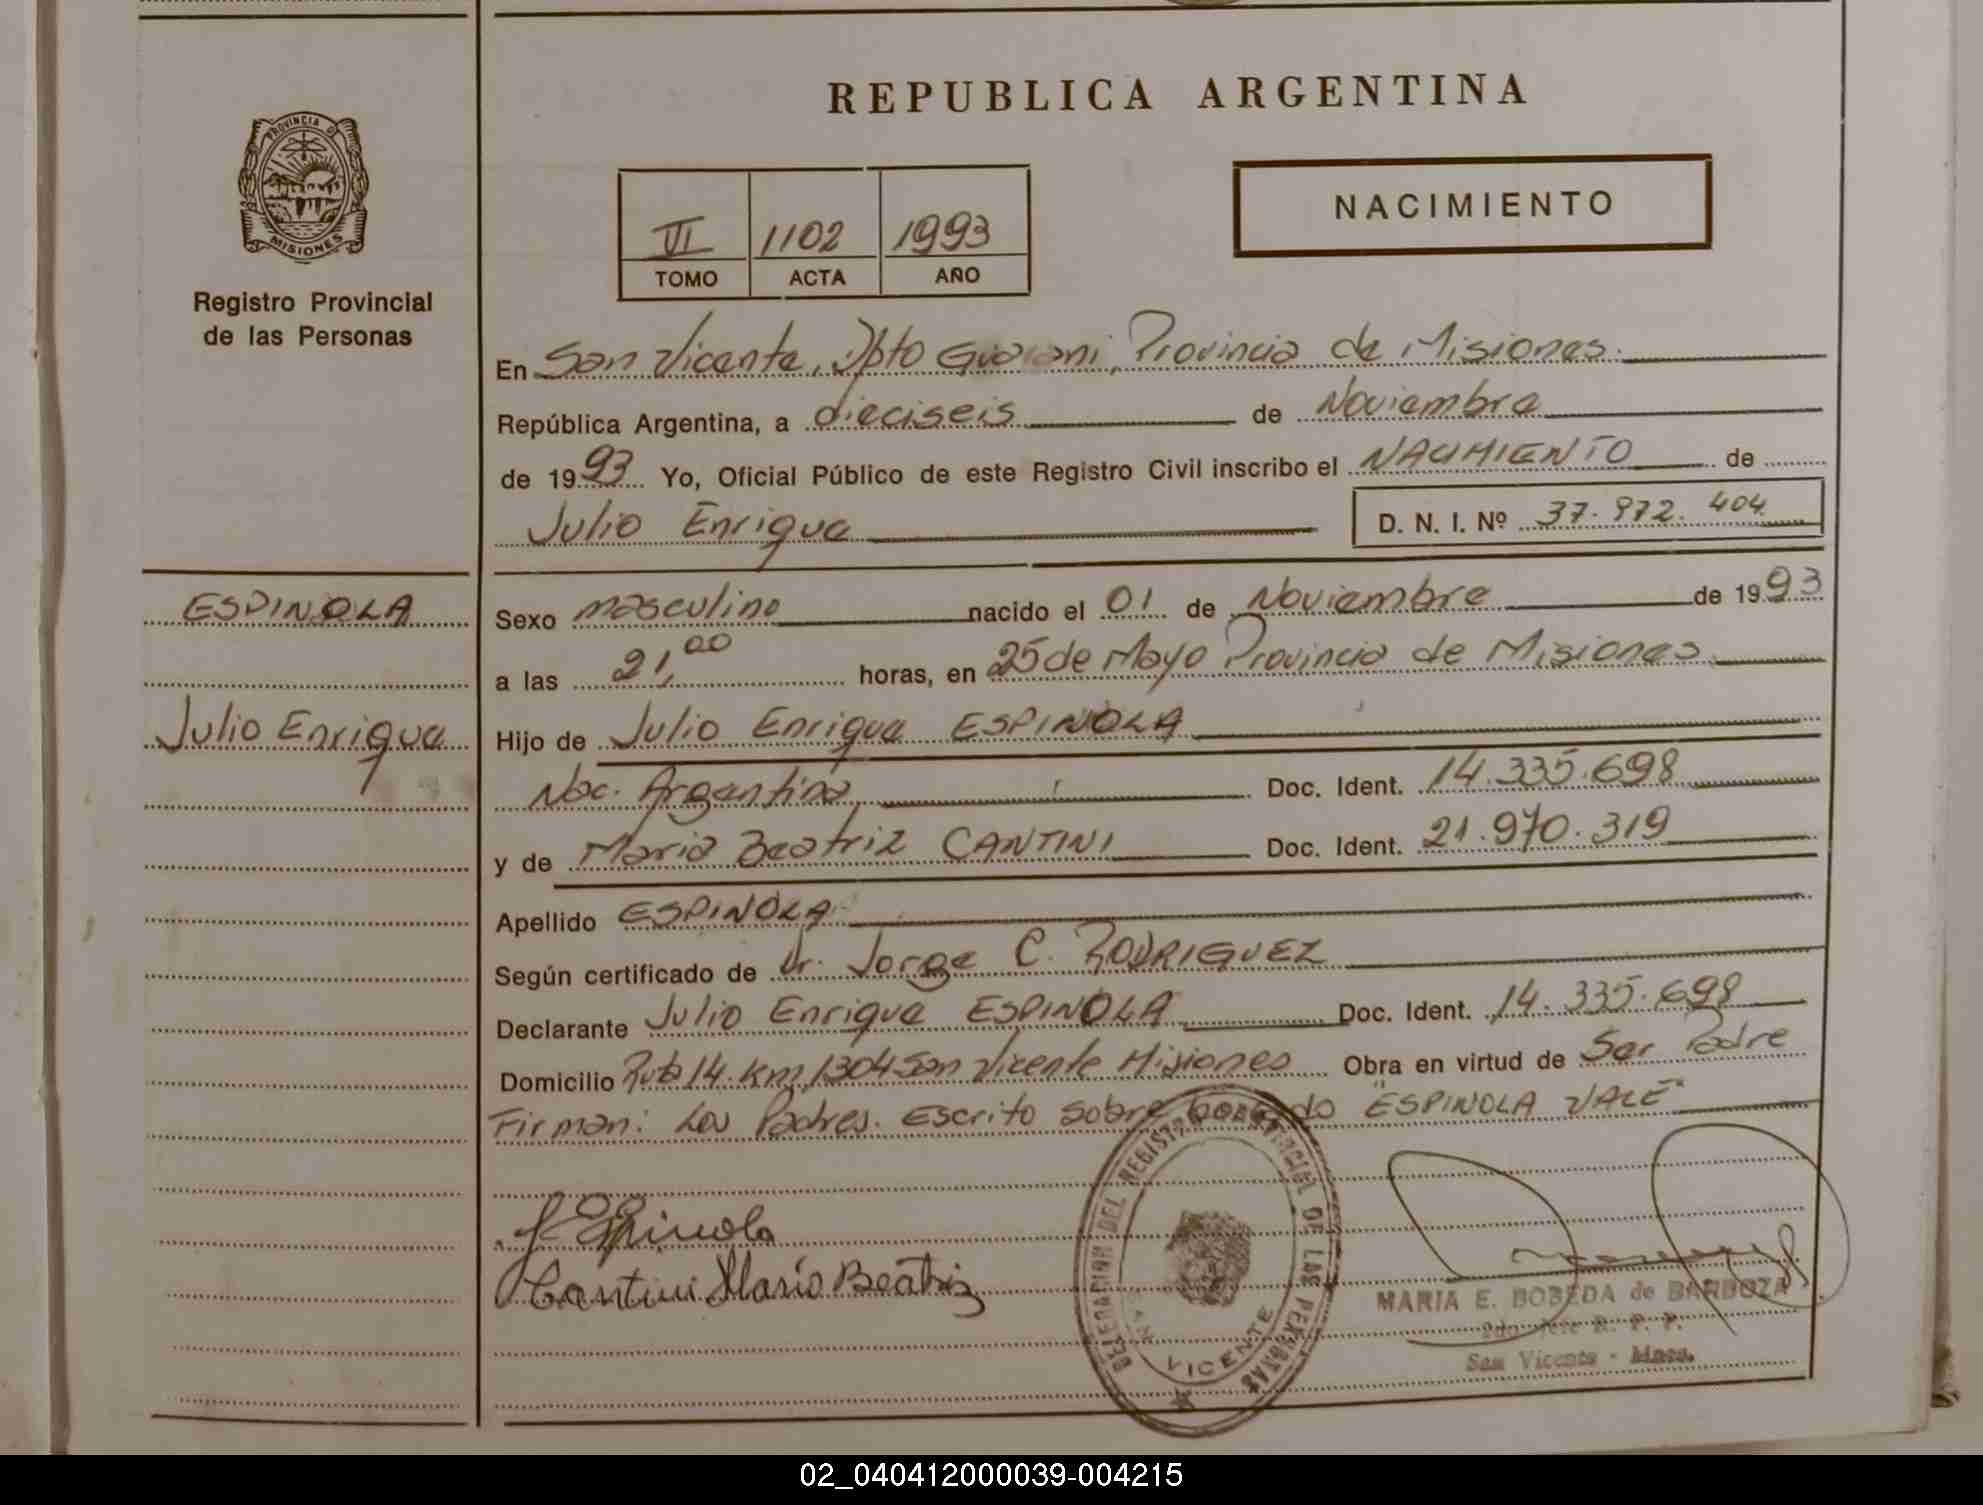 REPUBLICA ARGENTINA
PROVINCIA DE
MISIONES
Registro Provincial
de las Personas
VI 1102 1993
TOMO ACTA AÑO
NACIMIENTO
En San Vicente, Dpto Guarani, Provincia de Misiones.
República Argentina, a dieciseis de Noviembre
de 1993 Yo, Oficial Público de este Registro Civil inscribo el NACIMIENTO de
Julio Enrique D. N. I. Nº 37.972.404
ESPINOLA
Julio Enrique
Sexo masculino nacido el 01 de Noviembre de 1993
a las 21,00 horas, en 25 de Mayo Provincia de Misiones
Hijo de Julio Enrique ESPINOLA
Nac. Argentina Doc. Ident. 14.335.698
y de Maria Beatriz CANTINI Doc. Ident. 21.970.319
Apellido ESPINOLA
Según certificado de Dr. Jorge C. RODRIGUEZ
Declarante Julio Enrique ESPINOLA Doc. Ident. 14.335.698
Domicilio Ruta 14 km 1304 San Vicente Misiones Obra en virtud de Ser Padre
Firman: Los Padres. Escrito sobre borrado "ESPINOLA VALE"
Espinola
Cantini María Beatriz
DELEGACION DEL REGISTRO PROVINCIAL DE LAS PERSONAS
VICENTE
MARIA E. BOBEDA de BARBOZA
2do. Jefe R. P. P.
San Vicente - Mnes.
02_040412000039-004215